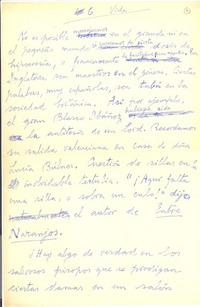 6 Vida
No es posible movernos en el grande ni en
el pequeño mundo
hipocresía, o francamente
Inglaterra son maestros en el género. Ciertas
palabras, muy españolas, son tabús en la
sociedad británica. Así por ejemplo,
el gran Blasco Ibáñez
la antítesis de un lord. Recordamos
su salida valenciana en casa de doña
Lucía Bulnes. Inertia de sillas en la
inolvidable tertulia. "¡Aquí falta
una silla, o sobra un culo!" dijo
el autor de Entre
Naranjos.
¿Hay algo de verdad en los
sabrosos piropos que se prodigan
ciertas damas en un salón